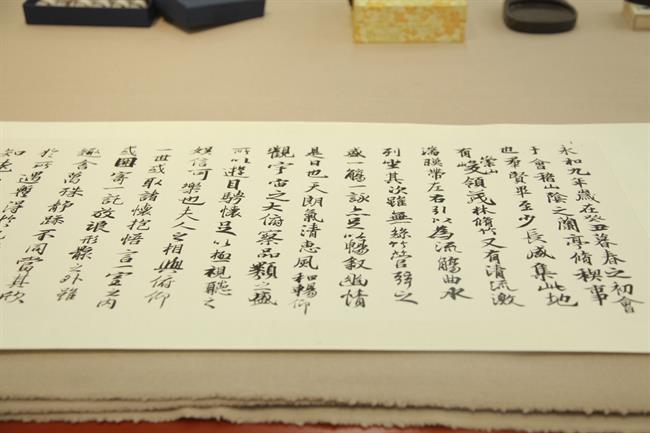 永和九年歲在癸丑暮春之初會
于會稽山陰之蘭亭脩稧事
也群賢畢至少長咸集此地
有崇山峻領茂林脩竹又有清流激
湍暎帶左右引以為流觴曲水
列坐其次雖無絲竹管弦之
盛一觴一詠亦足以暢敘幽情
是日也天朗氣清惠風和暢仰
觀宇宙之大俯察品類之盛
所以遊目騁懷足以極視聽之
娛信可樂也夫人之相與俯仰
一世或取諸懷抱悟言一室之內
或因寄所託放浪形骸之外雖
趣舍萬殊靜躁不同當其欣
於所遇蹔得於己
知老